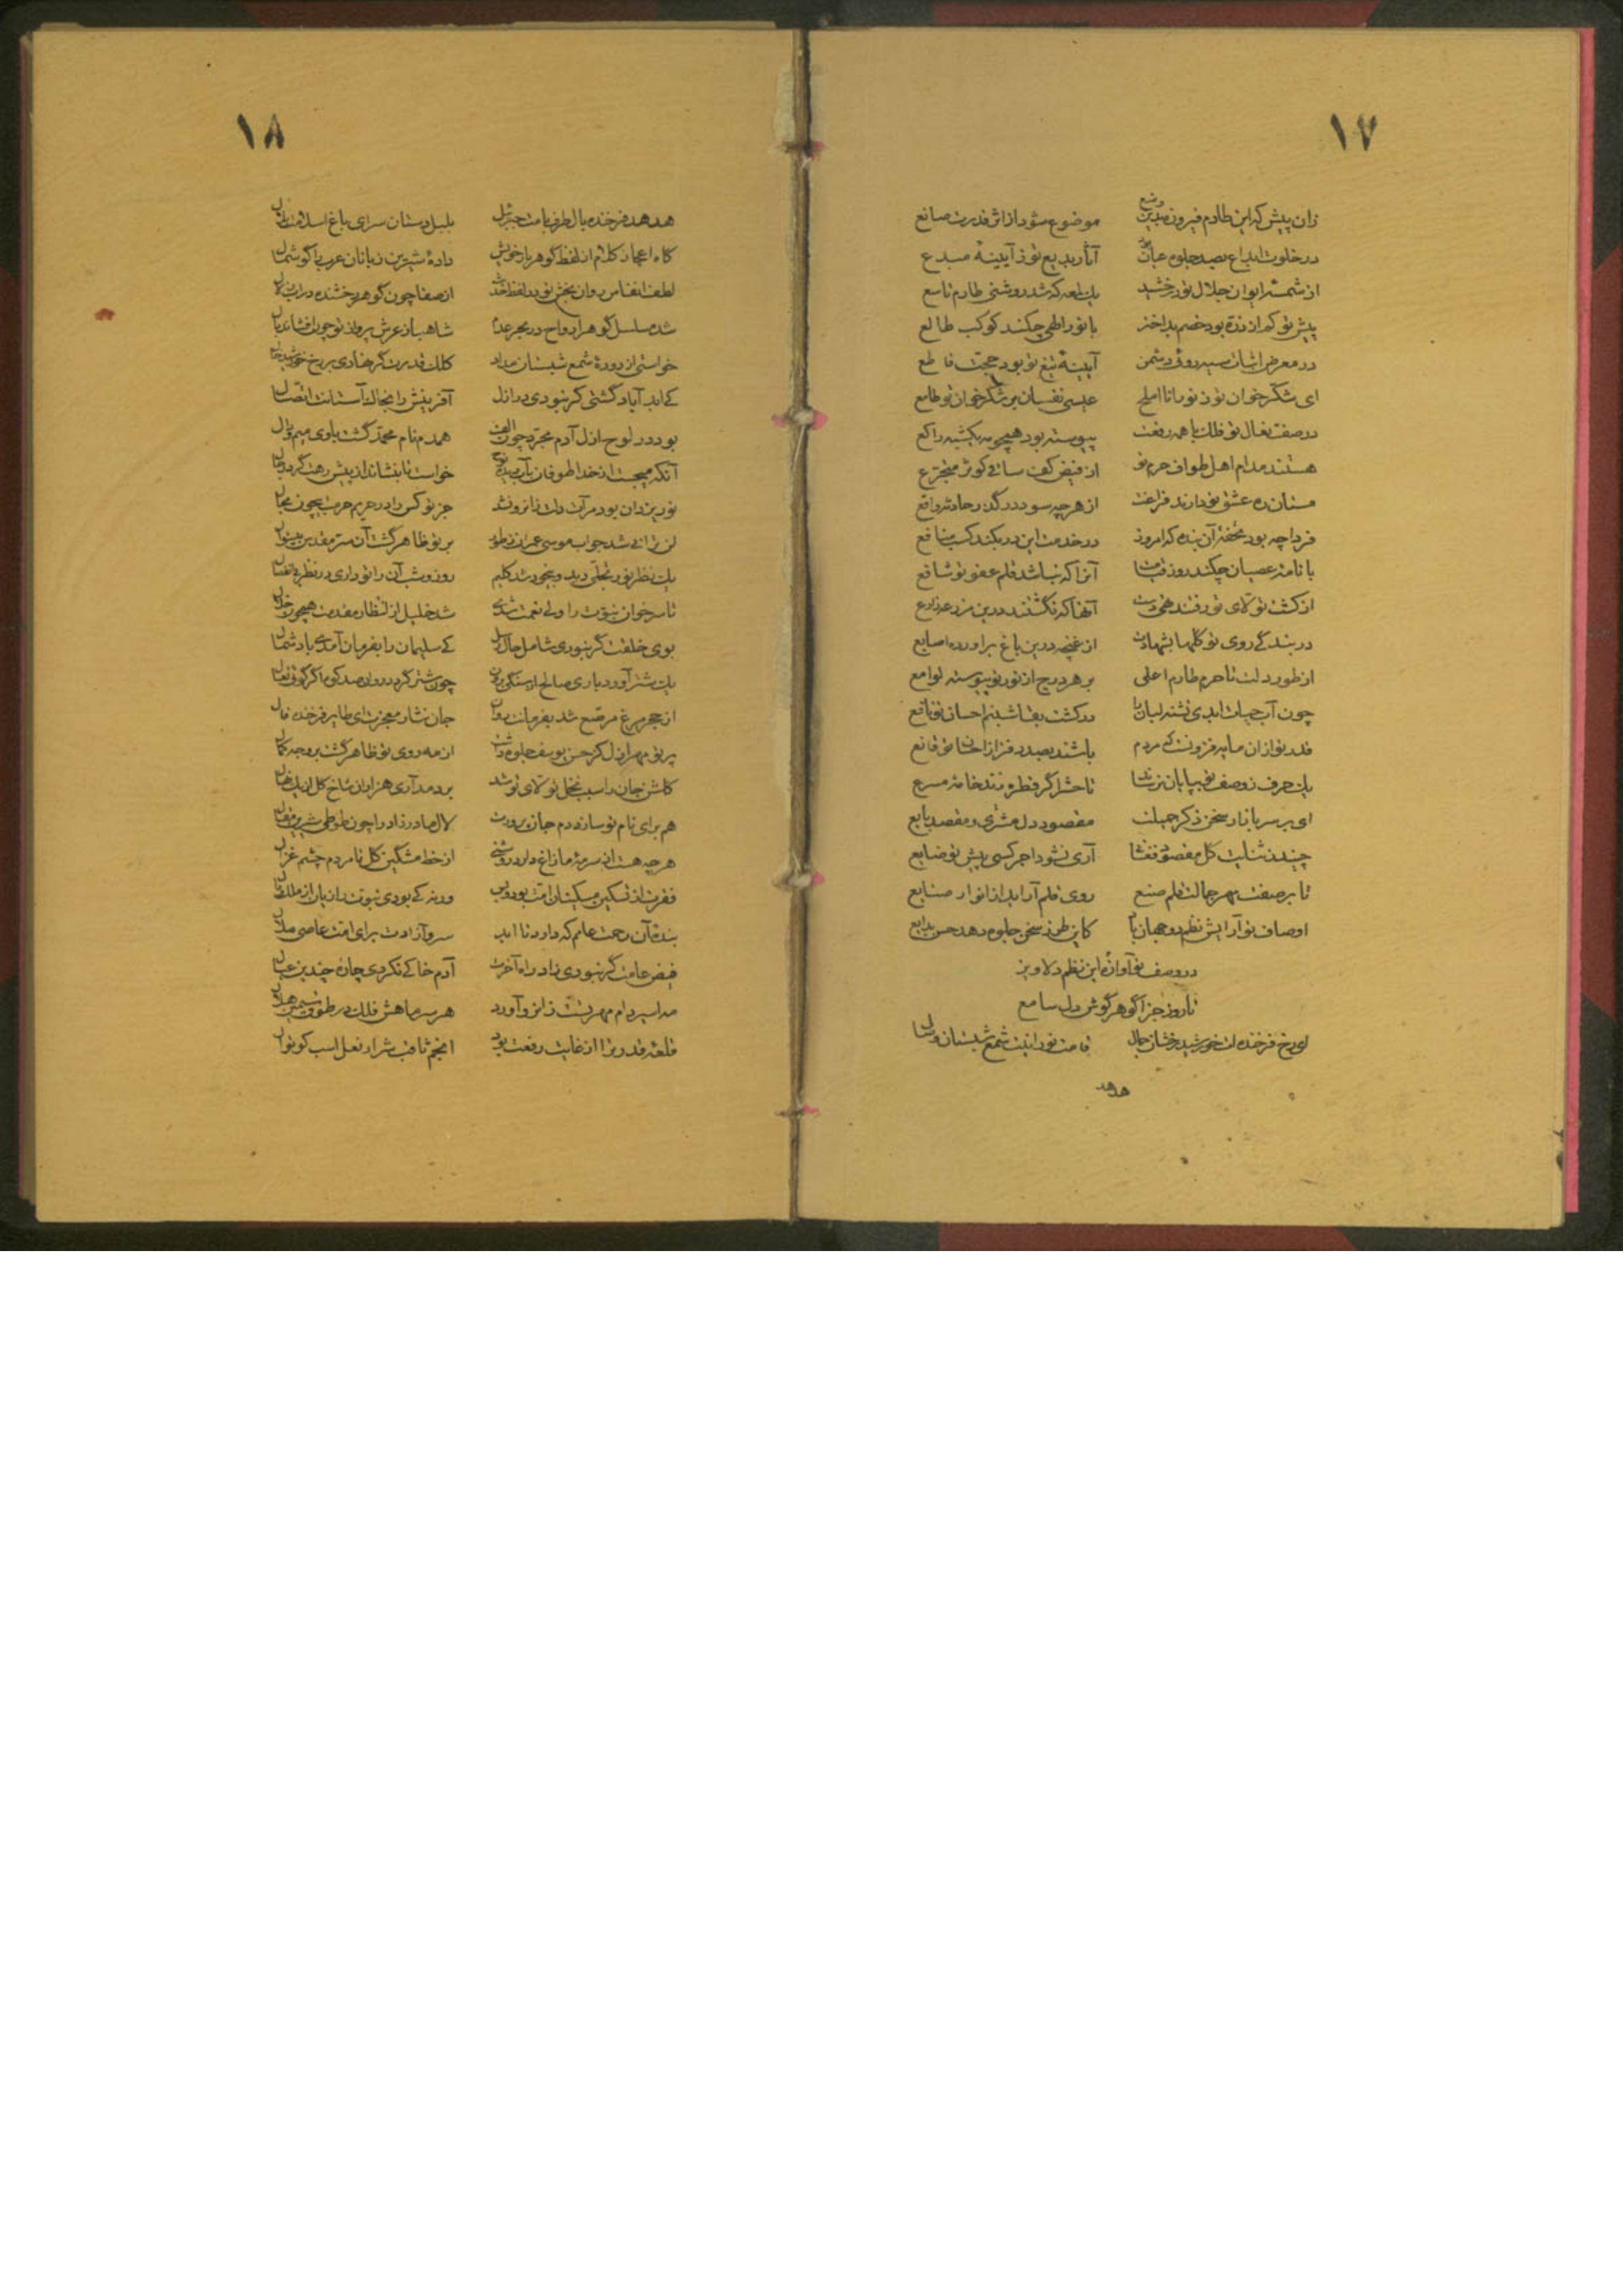 ١٧
زان پیش که این طارم فیروزه بدین وضع موضوع شود از اثر قدرت صانع
در خلوت ابداع بصد جلوه عیان بود آثار بدیع تو ز آیینهٔ مبدع
از شمسهٔ ایوان جلال تو درخشید یک لمعه که شد روشنی طارم تاسع
پیش تو کم از ذره بود خصم بداختر با نور الهی چکند کوکب طالع
در معرض اثبات سیه روئی دشمن آیینهٔ تیغ تو بود حجت قاطع
ای شکر خوان تو ز تو رانا املح عیسی نفسان بر شکر خوان تو طامع
در صف نعال تو فلک با همه رفعت پیوسته بود همچو مه یکشبه راکع
هستند مدام اهل طواف حرم تو از فیض کف ساقی کوثر متجرع
مستان ره عشق تو دارند فراغت از هرچه سود در گذر حادثه واقع
فردا چه بود تحفهٔ آن بنده که امروز در خدمت این در نکند کسب منافع
با نامهٔ عصیان چکند روز قیامت آنرا که نباشد قلم عفو تو شافع
از کشت تولای تو رفتند تهی دست آنها که نگشتند درین مزرعه زارع
در بندگی روی تو گلها بشهادت از غنچه درین باغ برآورده اصابع
از طور دلت تا حرم طارم اعلی بر هر درج از نور تو پیوسته لوامع
چون آب حیات ابدی تشنه لبان را در کشت بقا شبنم احسان تو نافع
قدر تو از آن مایه فزونست که مردم باشند بصد در فراز احسان تو قانع
یک حرف ز وصف تو بپایان نرساند تا حشر اگر قطره زند خامهٔ مسرع
ای بر سر بازار سخن ذکر جمیلت مقصود دل مشتری و مقصد بایع
چیدن ثنایت گل مقصود فغانی آری نشود اجر کسی پیش تو ضایع
تا بر صفت مهر جمالت قلم صنع روی قلم آراید از انوار صنایع
اوصاف تو آرایش نظم دو جهان باد کاین طرز سخن جلوه دهد حسن بدایع
در وصف تو آوازهٔ این نظم دلاویز
تا روز جزا گوهر گوش دل سامع
ای رخ فرخنده‌ات خورشید رخشان جمال قامت نورانیت شمع شبستان وصال
هدهد
١٨
هدهد فرخنده بال طرف بامت جبرئیل بلبل دستان سرای باغ اسلامت بلال
گاه اعجاز کلام از لفظ گوهربار خویش دادهٔ شیرین زبانان عرب را گوشمال
لطف انفاس روان بخش تو در لفظ حدیث از صفا چون گوهر رخشنده در آب زلال
شد مسلسل گوهر ارواح در بحر عدم شاهباز عرش پرواز تو چون افشاند بال
خواستی از دودهٔ شمع شبستانت مداد کلک قدرت گر نهادی بر رخ خورشید خال
کی ابد آباد گشتی گر نبودی در ازل آفرینش را بخاک آستانت اتصال
بود در لوح ازل آدم مجرد چون الف همدم نام محمد گشت با وی میم و دال
آنکه میجست از خدا طوفان بآب دیده نوح خواست تا بنشاند از پیش رهت گرد و بال
نور یزدان بود مرآت دلت زانرو نشد جز تو کس را در حریم حرمت بیچون مجال
لن ترانی شد جواب موسی عمران ز طور بر تو ظاهر گشت آن سر مقدس بیسؤال
یک نظر نور تجلی دید و بیخود شد کلیم روز و شب آن را تو داری در نظر بی انفعال
تا سر خوان نبوت را ولی نعمت شدی شد خلیل از انتظار مقدمت همچون خلال
بوی خلقت گر نبودی شامل حال رسل کی سلیمان را بفرمان آمدی باد شمال
یک شتر آورد باری صالح از سنگی برون چون شتر گرد در روان صد کوه اگر گوئی تعال
از حجر مرغ مرصع شد بفرمانت روان جان نثار معجزت ای طایر فرخنده فال
پرتو مهر ازل کز حسن یوسف جلوه داشت از مه روی تو ظاهر گشت بر وجه کمال
گلشن جان را سبب نخل تولای تو شد بردمد آری هزاران شاخ گل از یک نهال
هم برای نام تو سازد دم جان پرورت لال مادرزاد را چون طوطی شیرین مقال
هرچه هست از سرمهٔ مازاغ دارد روشنی از خط مشکین گل تا مردم چشم غزال
فقرت از تسکین مسکینان امت بود و بس ورنه کی بودی نبوت را زیان از ملک و مال
بندهٔ آن رحمت عامم که دارد تا ابد سرو آزادت برای امت عاصی ملال
فیض عامت گر نبودی زاد راه آخرت آدم خاکی نکردی چارهٔ چندین عیال
مه اسیر دام مهر تست زانرو آورد هر سر ماهش فلک در طوق سیمین هلال
قلعهٔ قدر ترا از غایت رفعت بود انجم ثاقب شرار نعل اسب کوتوال